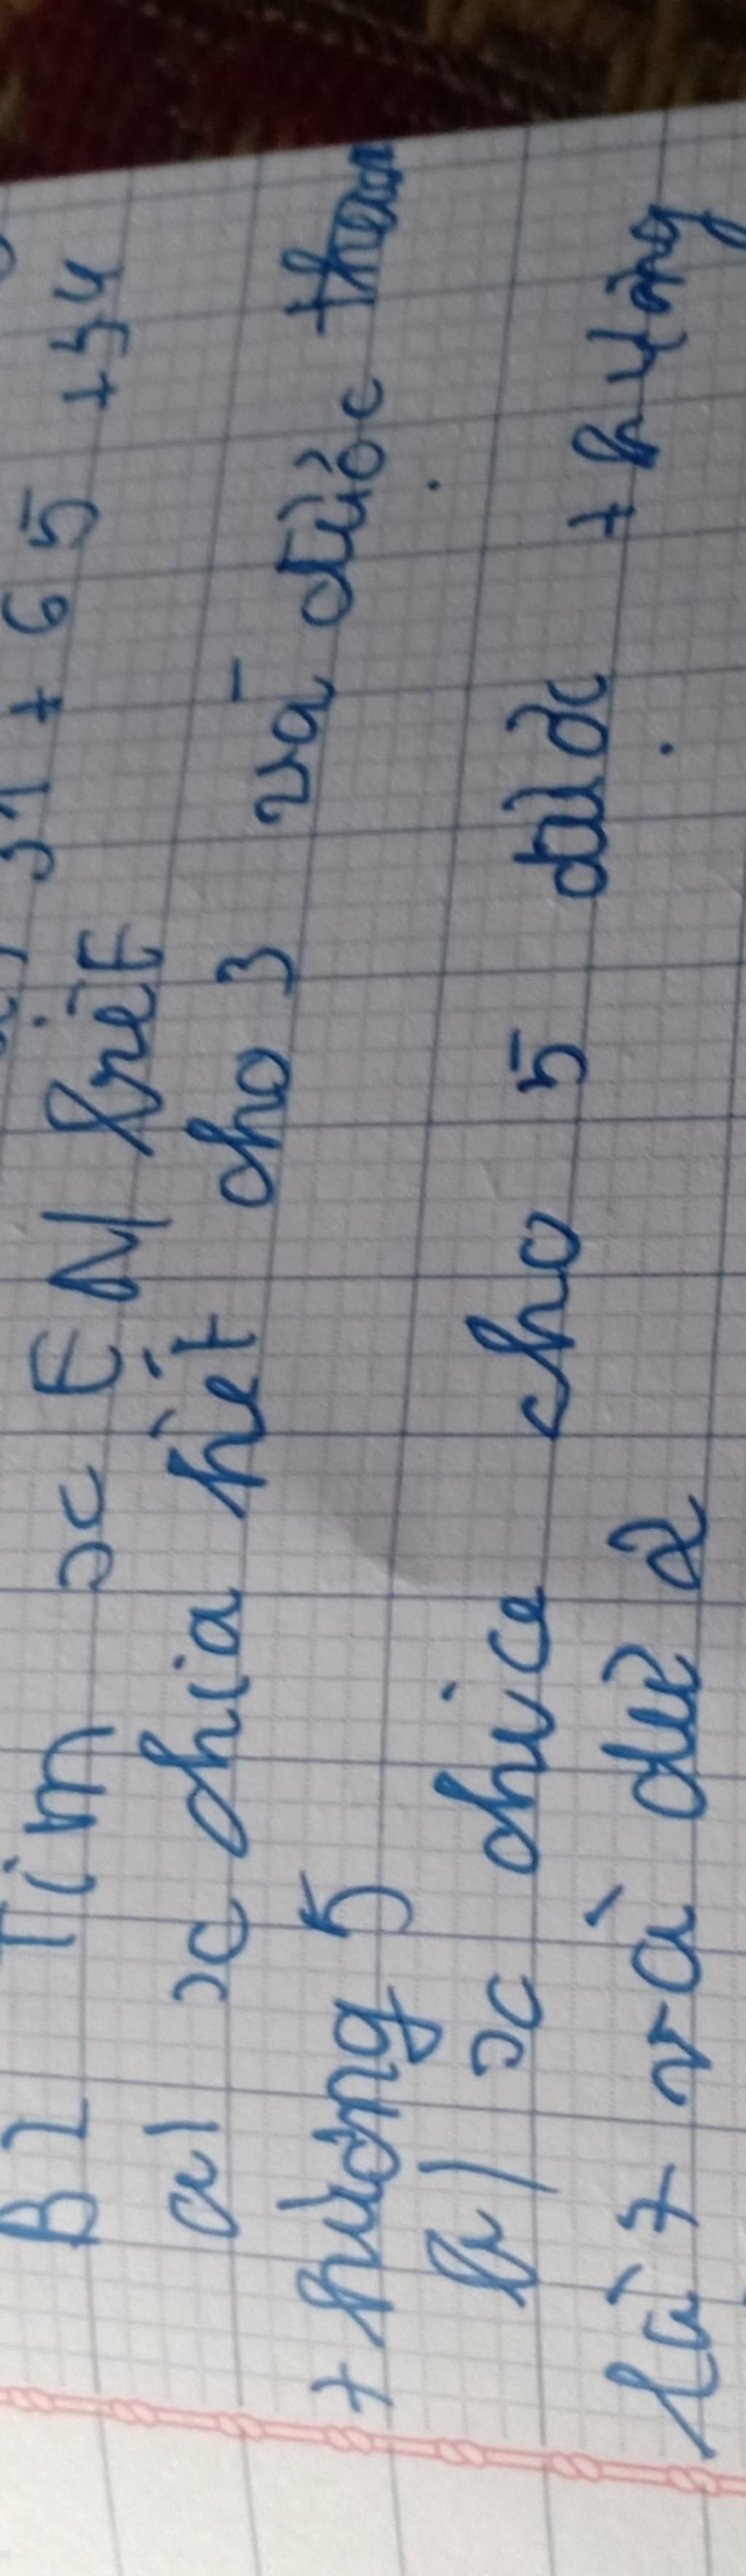 31 + 65 + 34
B2 Tìm x ∈ N biết
a) x chia hết cho 3 và được
thương 5
b) x chia cho 5 được thương
là 7 và dư 2